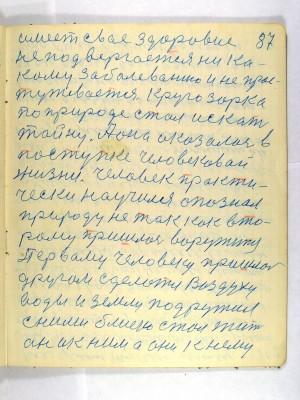 имеет свае здоровие 87
неподвергается ни ка-
кому заболеванию и не прос-
туживается. Кругозорка
по природе стал искать
тайну. Аона оказалася в
поступке человековай
жизни. Человек практи-
чески научился опознал
природу не так как вто-
рому пришлося
Первому человеку пришлося
другом сделати Воздуху
воды и земли подружил
сними близко стал жит
он ак ним а они к нему